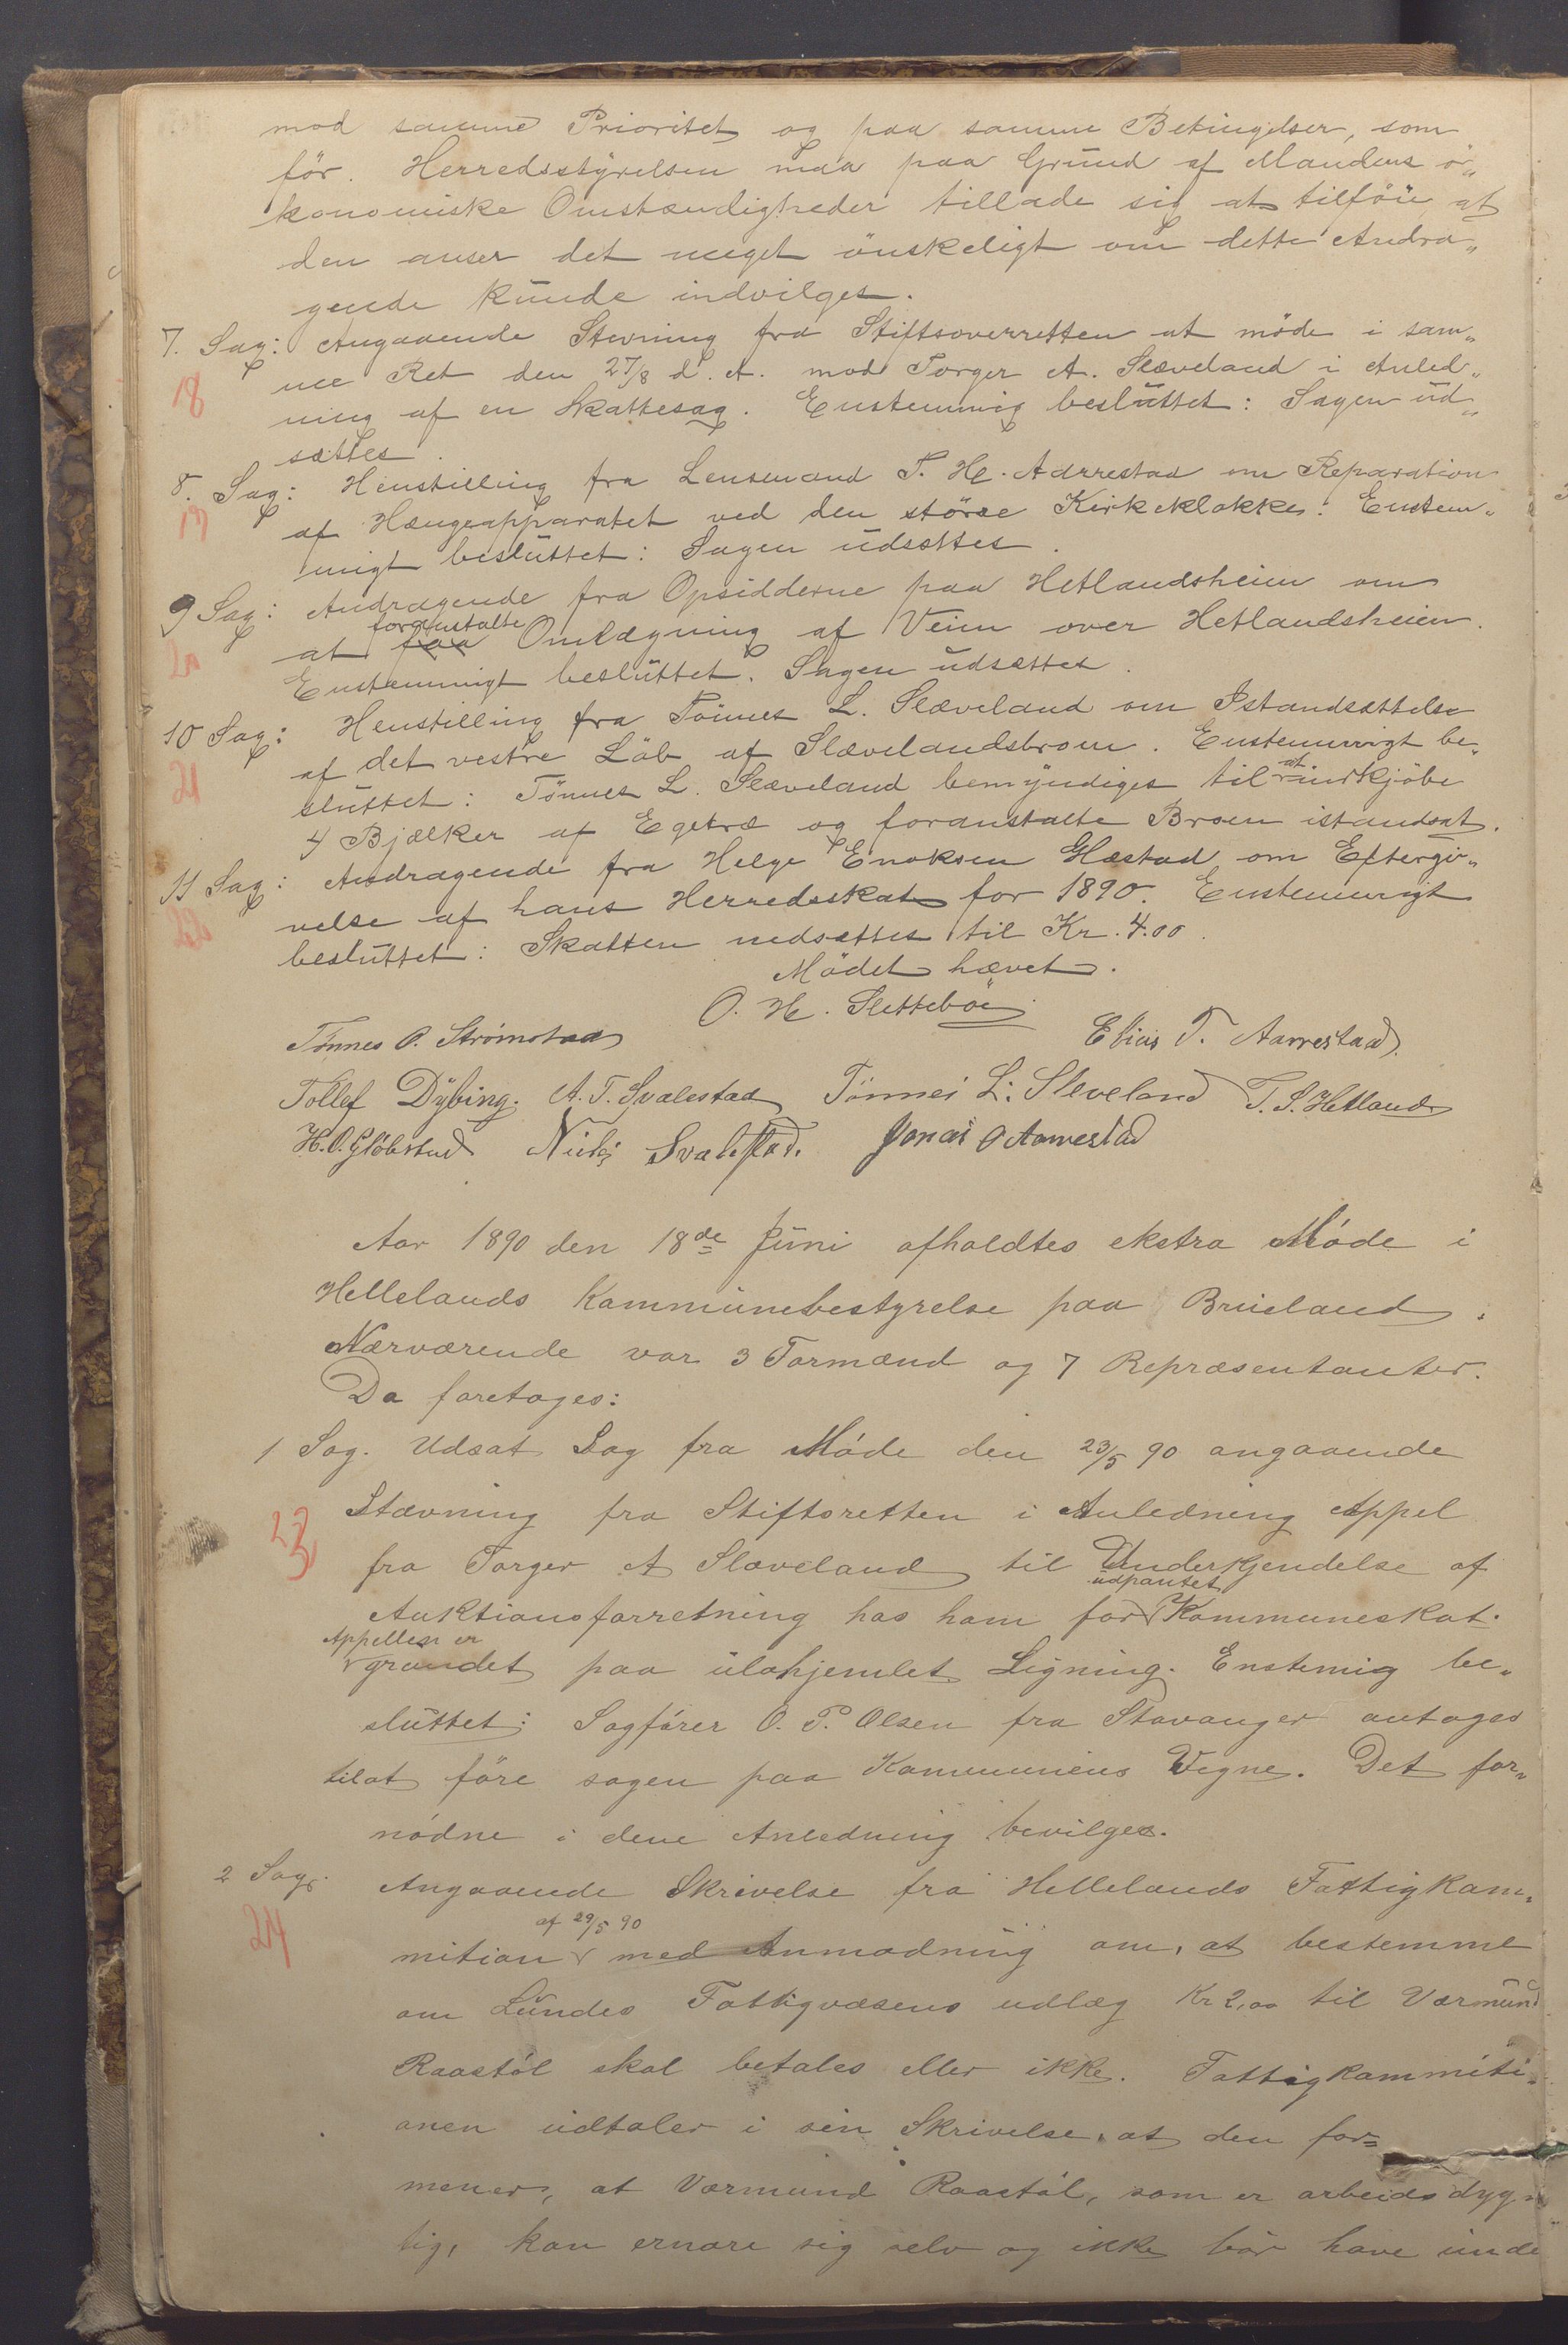 mod samme Prioritet og paa samme Betingelser, som
för. Herredsstyrelsen maa paa Grund af Mandens ö„
konomiske Omstændigheder tillade sig at tilföie, at
den anser det meget önskeligt om dette Andra„
gende kunde indvilges.
7. Sag: Angaaende Stevning fra Stiftsoverretten at möde i sam„
18
me Ret den 27/8 d. A. mod Torger A. Slæveland i Anled„
ning af en Skattesag. Enstemmig besluttet: Sagen ud„
sættes.
8. Sag: Henstilling fra Lensmand T. H. Aarrestad om Reparation
19
af Hængeapparatet ved den större Kirkeklokke. Enstem„
migt besluttet: Sagen udsættes.
9 Sag: Andragende fra Opsidderne paa Hetlandsheien om
foranstalte
at faa Omlægning af Veien over Hetlandsheien.
20
Enstemmigt besluttet. Sagen udsættes.
10 Sag: Henstilling fra Tönnes L. Slæveland om Istandsættelse
af det vestre Löb af Slævelandsbroen. Enstemmigt be„
21
sluttet: Tönnes L. Slæveland bemyndiges til at indkjöbe
4 Bjælker af Egetræ og foranstalte Broen istandsat.
11 Sag: Andragende fra Helge Enoksen Glæstad om Eftergi„
22
velse af hans Herredsskat for 1890. Enstemmigt
besluttet: Skatten nedsættes til Kr. 4.00.
Mödet hævet.
O. H. Slettebö
Tønnes O. Strømstad Elias T. Aarrestad.
Tollef Dybing. A. T. Svalestad Tönnes L. Sleveland T. S. Hetland
H. O. Gløbstad Svalestad. Jonas O Aarrestad
Aar 1890 den 18de Juni afholdtes ekstra Móde i
Hellelands Kommunebestyrelse paa Brueland.
Nærværende var 3 Formænd og 7 Repræsentanter.
Da foretages:
1 Sag. Udsat Sag fra Móde den 23/5 90 angaaende
23
Stævning fra Stiftsretten i Anledning Appel
fra Torger A Slæveland til Underkjendelse af
udpantet
Auktionsforretning hos ham for Kommuneskat.
Appellen er
grundet paa ulohjemlet Ligning. Enstemig be„
sluttet: Sagfórer O. P. Olsen fra Stavanger antages
tilat före sagen paa Kommunens Vegne. Det for„
nódne i dene Anledning bevilges.
2 Sag. Angaaende Skrivelse fra Hellelands Fattigkom„
24
af 29/5 90
mition med Anmodning om, at bestemme
om Lundes Fattigvæsens udlæg Kr 2,00 til Værmund
Raastól skal betales eller ikke. Fattigkommiti„
onen udtaler i sin Skrivelse, at den for„
mener, at Værmund Raastól, som er arbeidsdyg„
tig, kan ernære sig selv og ikke bör have unde